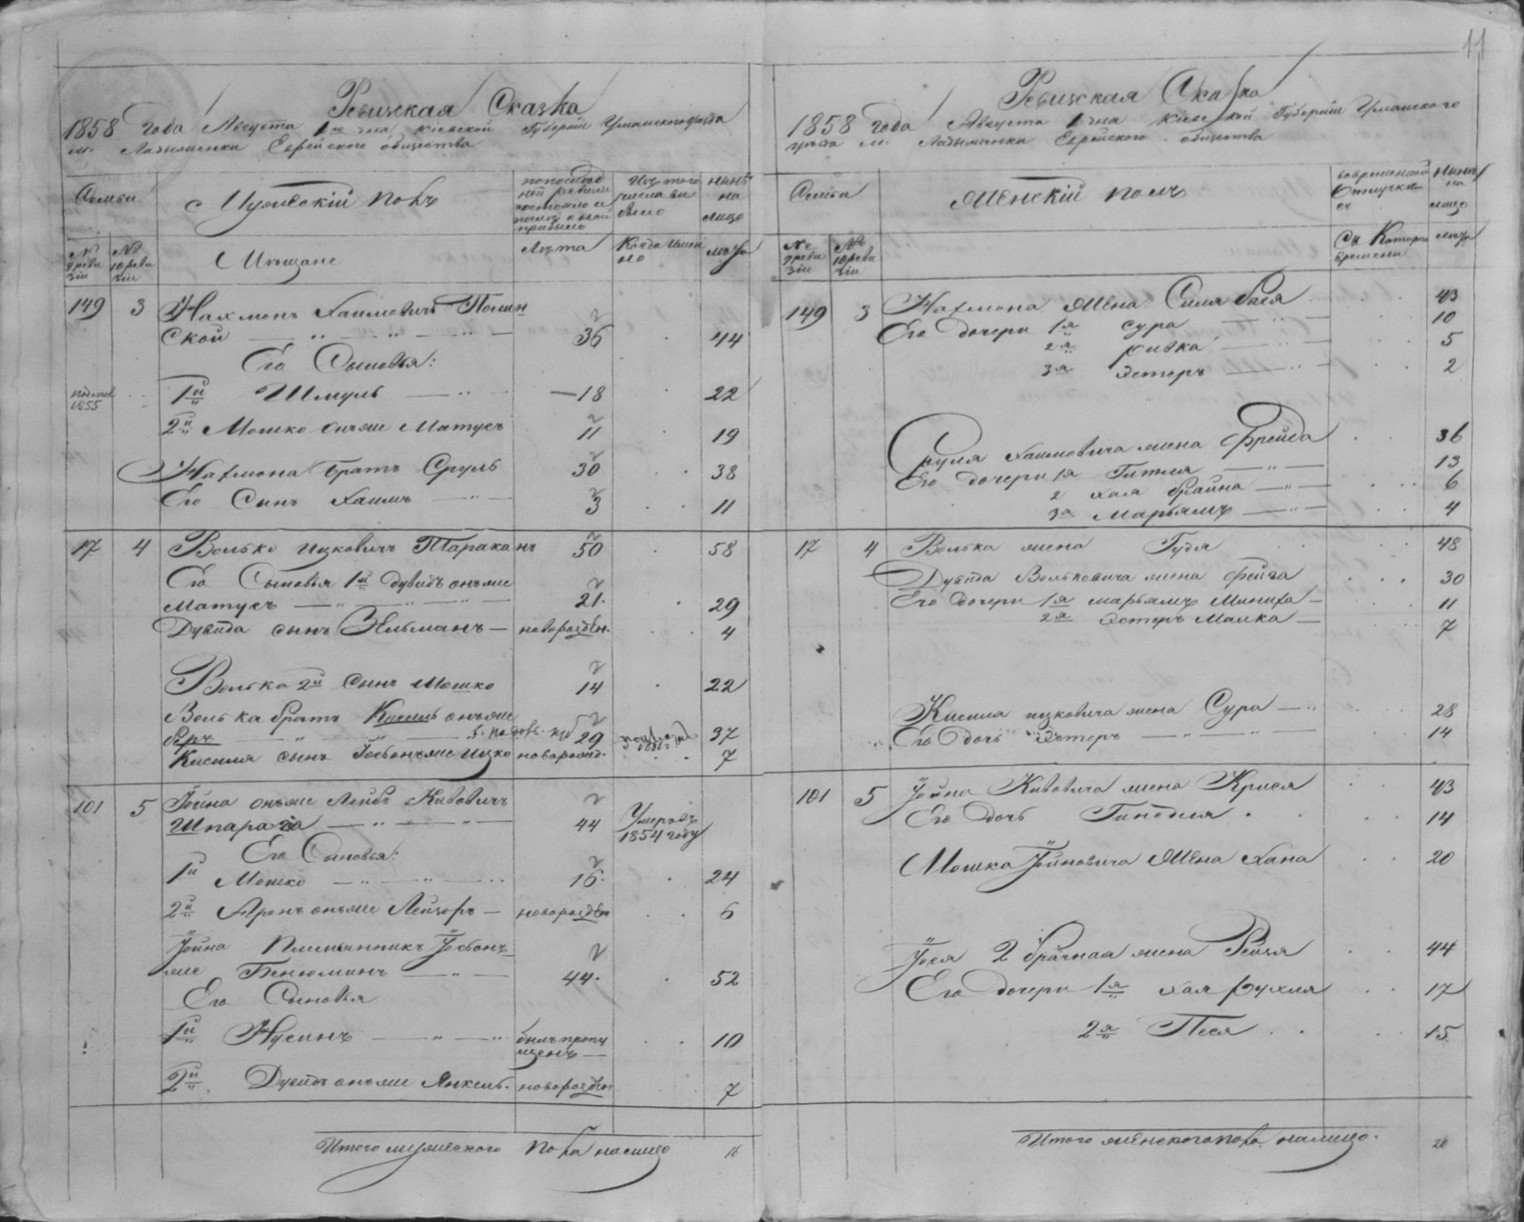 11
Ревизская Сказка
1858 года Августа 1го дня Киевской Губернии Уманского уезда
м. Ладыженки Еврейского общества
Семьи
Мужеский Полъ
по последней ревизии состояло и после оной прибыло
Изъ того числа выбыло
Ныне на лицо
№ 9 ревизии
№ 10 ревизии
Мещане
Лета
Когда именно
Лета
149 3 Нахмонъ Хаимовичъ Полин
ской 36 44
Его Сыновья:
1й Шмуль 18 22
1855
2й Мошко онъже Матусъ 11 19
Нахмона братъ Сруль 30 38
Его Сынъ Хаимъ 3 11
17 4 Волько Ицковичъ Тараканъ 50 58
Его Сыновья 1й Дувидъ онъже
Матусъ 21 29
Дувида сынъ Зельманъ новорожден. 4
Волька 2й Сынъ Мошко 14 22
Волька братъ Кисиль онъже
29 37
Кисиля сынъ Иосъ онъже Ицко новорожд. 7
101 5 Иойна онъже Лейбъ Кивовичъ
Шпарага 44 Умеръ въ 1854 году
Его Сыновья:
1й Мошко 16 24
2й Аронъ онъже Лейзоръ новорожден 6
Иойна Племянникъ Иось онъ
же Бенюминъ 44 52
Его Сыновья
1й Нусинъ былъ пропущенъ 10
2й Дувидъ онъже Янкель новорожден 7
Итого мужеского пола налицо 16
Ревизская Сказка
1858 года Августа 1 дня Киевской Губернии Уманского
уезда м. Ладыженка Еврейского общества
Семьи
Женский полъ
во временной отлучке
Ныне на лицо
№ 9 ревизии
№ 10 ревизии
Съ Которого времени
лета
149 3 Нахмона Жена Сима Бася 43
Его дочери 1я Сура 10
2я Ривка 5
3я Эстеръ 2
Сруля Хаимовича жена Фрейда 36
Его дочери 1я Гитля 13
2 Хая Брайна 6
3я Марьямъ 4
17 4 Волька жена Гудя 48
Дувида Вольковича жена Фейга 30
Его дочери 1я Марьямъ Миниха 11
2я Эстеръ Малка 7
Кисиля Ицковича жена Сура 28
Его дочь Эстеръ 14
101 5 Иойна Кивовича жена Крися 43
Его дочь Гинедля 14
Мошка Иойновича Жена Хана 20
Иося 2 брачная жена Рейзя 44
Его дочери 1я Хая Рухля 17
2я Песя 15
Итого женского пола налицо 20